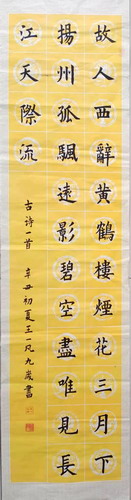 故人西辭黃鶴樓煙花三月下
揚州孤颿遠影碧空盡唯見長
江天際流
古诗一首 辛丑初夏王一凡九歲書